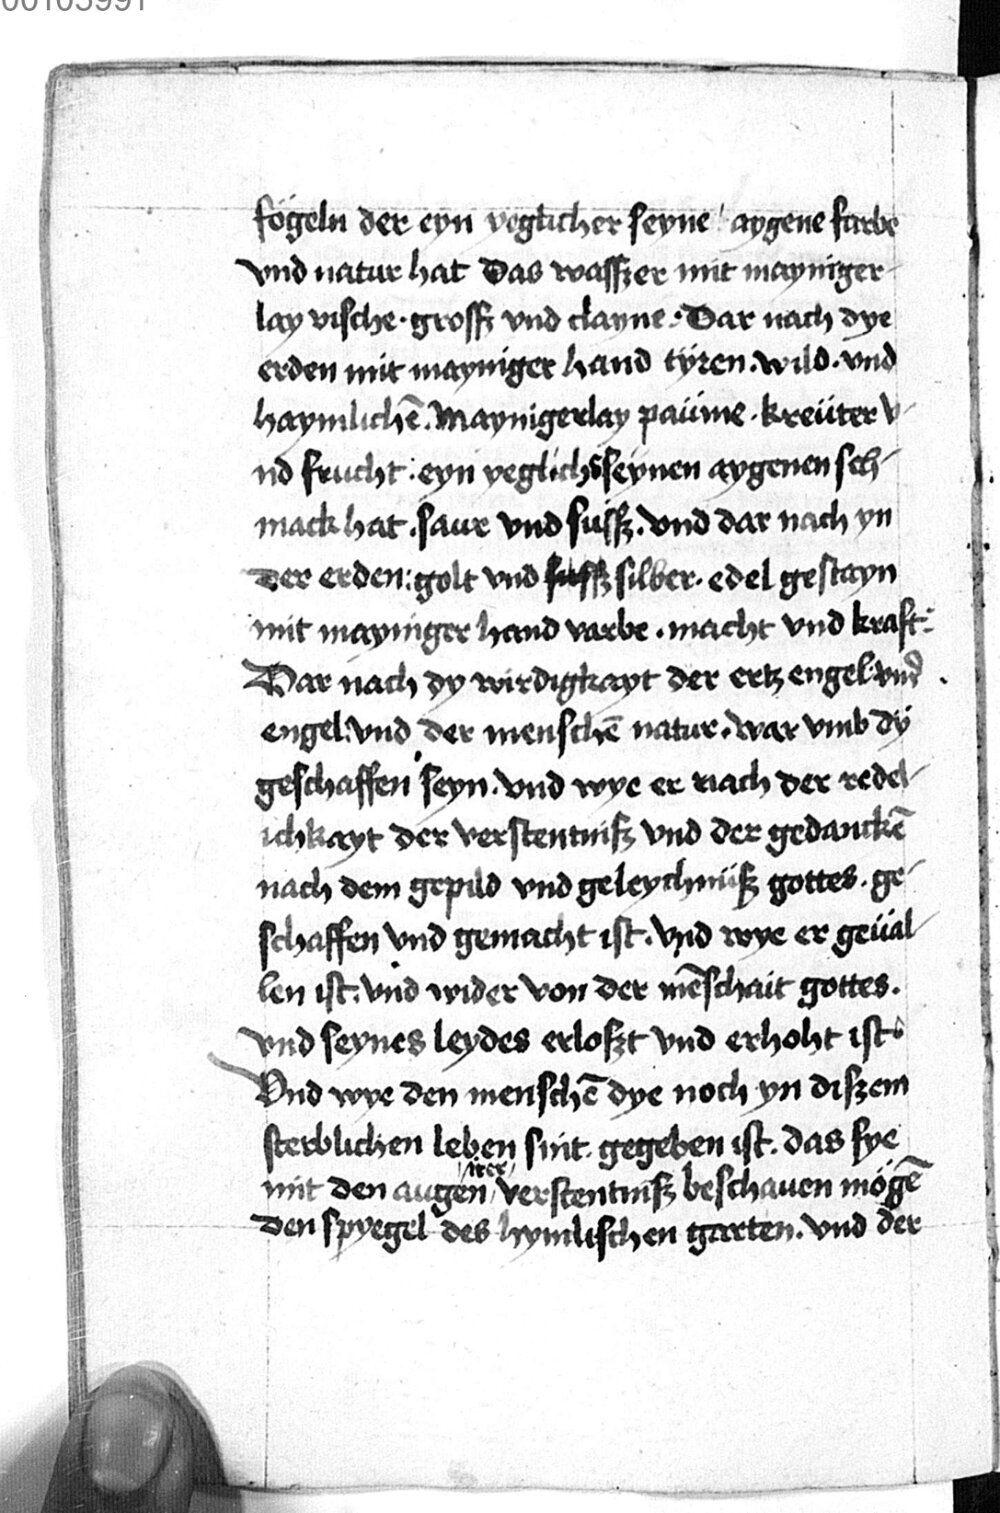 00103991
fögeln der eyn yeglicher seyne aygene farbe
vnd natur hat Das wasszer mit mayniger-
lay vische · grossz vnd clayne : Dar nach dye
erden mit mayniger hand tÿren . wild · vnd
haymlichē . Maynigerlay paüme · kreüter v-
nd frucht : eyn yeglichs seynen aygenen sch-
mack hat . saur vnd süssz . vnd dar nach yn
der erden : golt vnd silber · edel gestayn
mit mayniger hand varbe . macht vnd kraft :
Dar nach dy wirdigkayt der ertz engel · vnd
engel : vnd der menschē natur . War vmb dÿ
geschaffen seyn . vnd wye er nach der redel-
ichkayt der verstentnisz vnd der gedanckē
nach dem gepild vnd geleychnüsz gottes . ge-
schaffen vnd gemacht ist . vnd wye er geüal-
len ist . vnd wider von der mēschait gottes .
vnd seynes leydes erloszt vnd erhoht ist
Vnd wye den menschē dye noch yn diszem
sterblichen leben sint gegeben ist . das sye
irer
mit den augen verstentnisz beschauen mögē
den spyegel des hymlischen garten . vnd der